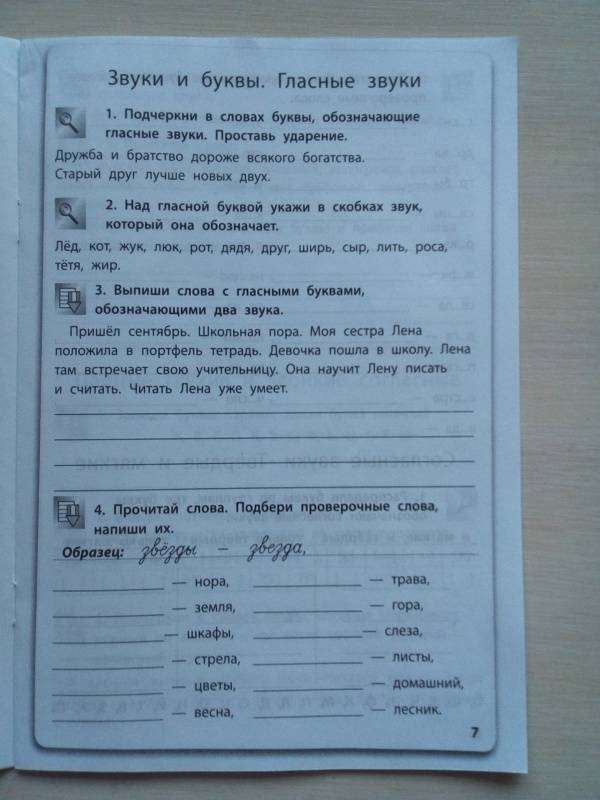 Звуки и буквы. Гласные звуки
1. Подчеркни в словах буквы, обозначающие
гласные звуки. Проставь ударение.
Дружба и братство дороже всякого богатства.
Старый друг лучше новых двух.
2. Над гласной буквой укажи в скобках звук,
который она обозначает.
Лёд, кот, жук, люк, рот, дядя, друг, ширь, сыр, лить, роса,
тётя, жир.
3. Выпиши слова с гласными буквами,
обозначающими два звука.
Пришёл сентябрь. Школьная пора. Моя сестра Лена
положила в портфель тетрадь. Девочка пошла в школу. Лена
там встречает свою учительницу. Она научит Лену писать
и считать. Читать Лена уже умеет.
4. Прочитай слова. Подбери проверочные слова,
напиши их.
Образец: звёзды – звезда,
— нора, — трава,
— земля, — гора,
— шкафы, — слеза,
— стрела, — листы,
— цветы, — домашний,
— весна, — лесник.
7